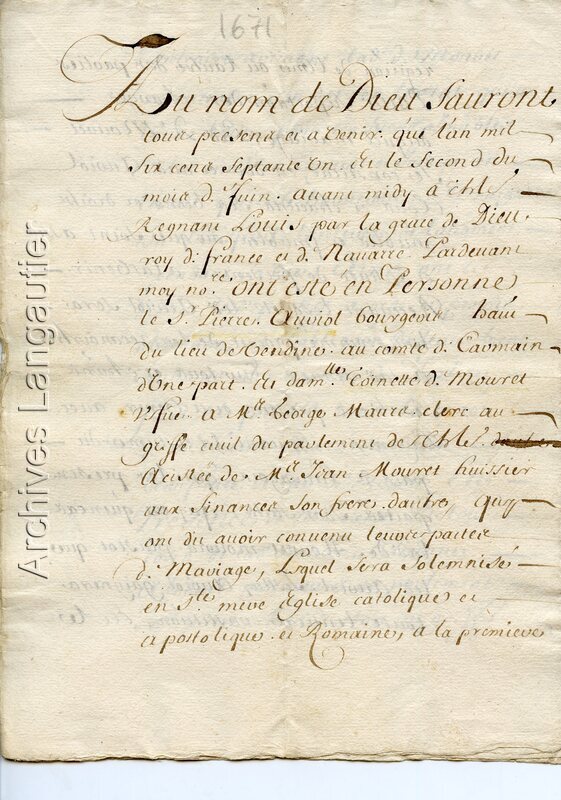 1671
Au nom de Dieu Sauront
tous presens et a venir que l'an mil
six cens septante un et le second du
mois de Juin avant midy a Thle
Regnant Louis par la grace de Dieu
roy de france et de Navarre Pardevant
moy nore ont este en Personne
le Sr Pierre Auriol bourgeois hant
du lieu de Vendine au comte de Caramain
d'une part et damlle Toinette de Mouret
vefue a Mre George Maura clerc au
greffe civil du parlement de Thle
Acistée de Mre Jean Mouret huissier
aux finances son frere dautre, quy
ont du avoir convenu
de Mariage, Lequel sera Solemnisé
en Ste mere Eglise catolique et
apostolique et Romaine, a la premiere
Archives Langautier